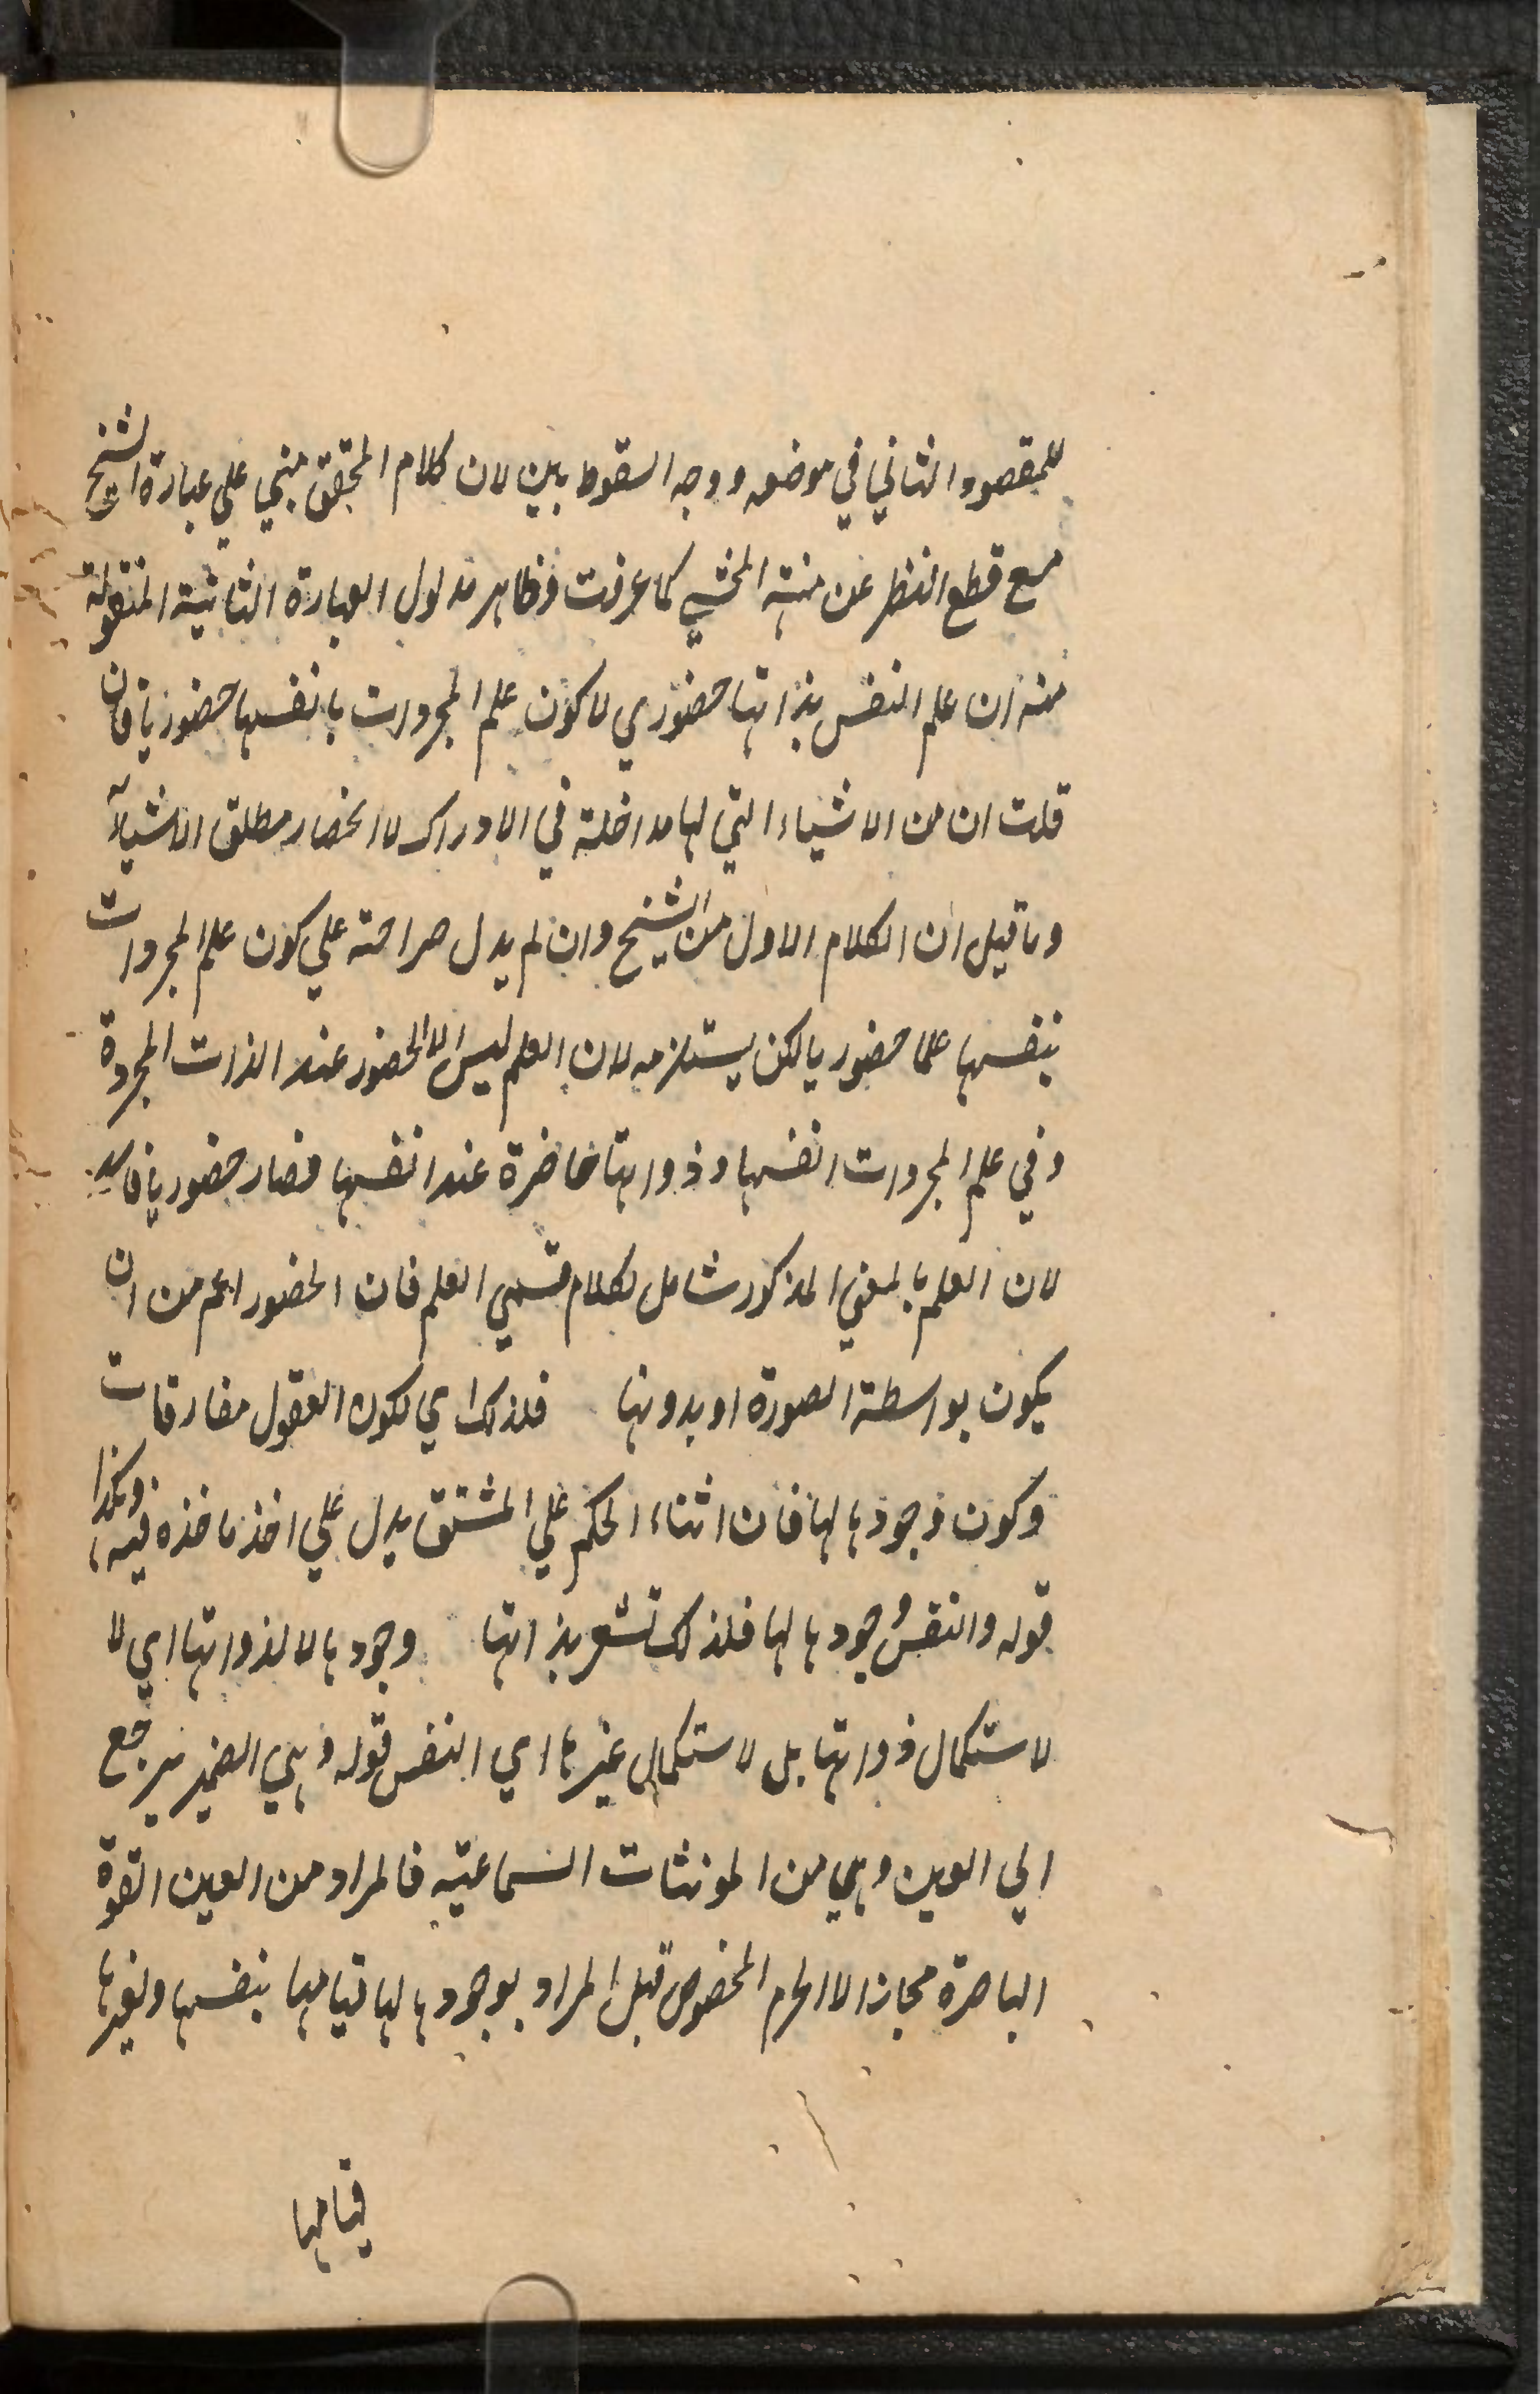 للمقصود الثاني في موضعه ووجه السقوط بين لان كلام المحقق مبني علي عبارة الشيخ
مع قطع النظر عن منهية المحشي كما عرفت وظاهر مدلول العبارة الثانية المنقولة
منه ان علم النفس بذاتها حضوري لا كون علم المجردات بانفسها حضوريا فان
قلت ان من الاشياء التي لها مداخلة في الادراك لا انحصار مطلق الاشياء
وما قيل ان الكلام الاول من الشيخ وان لم يدل صراحة علي كون علم المجردات
بنفسها علما حضوريا لكن يستلزمه لان العلم ليس الا الحضور عند الذات المجردة
وفي علم المجردات انفسها وذواتها حاضرة عند انفسها فصار حضوريا فاسد
لان العلم بالمعني المذكور شامل لكلام قسمي العلم فان الحضور اعم من ان
يكون بواسطة الصورة او بدونها فلذلك اي لكون العقول مفارقات
وكون وجودها لها فان اثناء الحكم علي المشتق يدل علي اخذ ماخذه فيه وهكذا
قوله والنفس وجودها لها فلذلك تشعر بذاتها وجودها لا لذواتها اي لا
لاستكمال ذواتها بل لاستكمال غيرها اي النفس قوله وهي الضمير يرجع
الي العين وهي من المونثات السماعية فالمراد من العين القوة
الباصرة مجازا لا الجرم المخصوص قبل المراد بوجودها لها قيامها بنفسها ولغيرها
قيامها